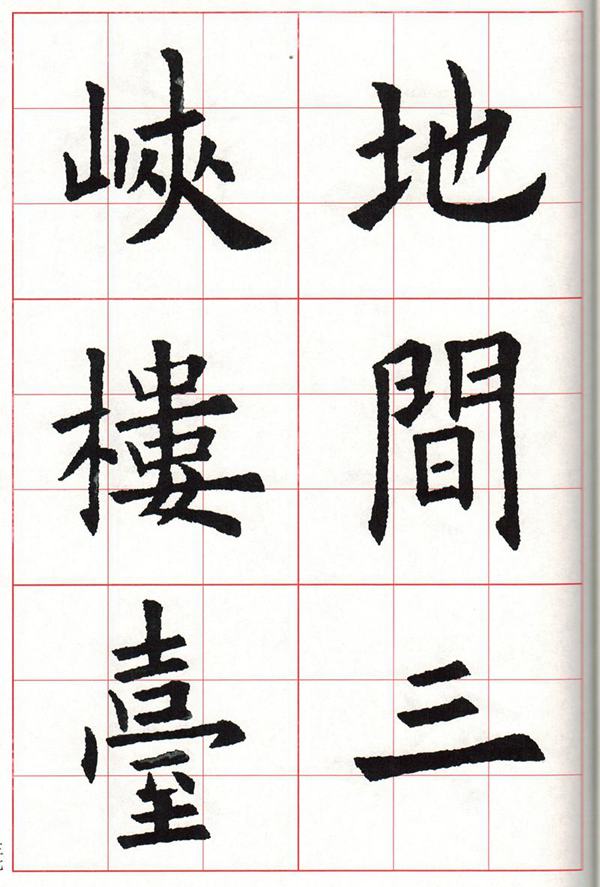 地間三
峽樓臺